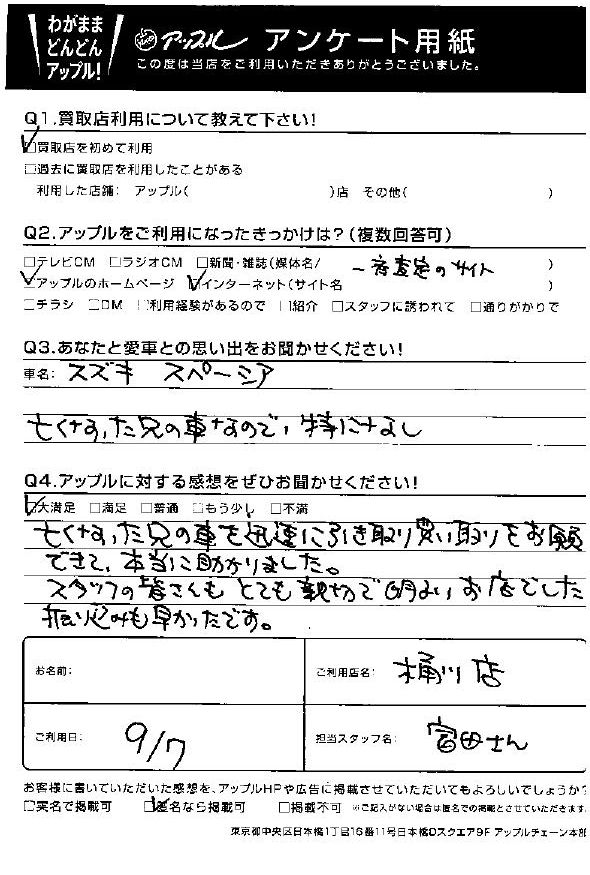 わがまま
どんどん
アップル!
アップル アンケート用紙
この度は当店をご利用いただきありがとうございました。
Q1.買取店利用について教えて下さい!
☑買取店を初めて利用
□過去に買取店を利用したことがある
利用した店舗: アップル( )店 その他( )
Q2.アップルをご利用になったきっかけは?(複数回答可)
□テレビCM □ラジオCM □新聞・雑誌(媒体名/ )
☑アップルのホームページ ☑インターネット(サイト名 一斉査定のサイト )
□チラシ □DM □利用経験があるので □紹介 □スタッフに誘われて □通りがかりで
Q3.あなたと愛車との思い出をお聞かせください!
車名: スズキ スペーシア
亡くなった兄の車なので、特になし
Q4.アップルに対する感想をぜひお聞かせください!
☑大満足 □満足 □普通 □もう少し □不満
亡くなった兄の車を迅速に引き取り買い取りをお願い
できて、本当に助かりました。
スタッフの皆さんも とても親切で明るいお店でした
振り込みも早かったです。
お名前:
ご利用店名: 桶川店
ご利用日: 9/7
担当スタッフ名: 富田さん
お客様に書いていただいた感想を、アップルHPや広告に掲載させていただいてもよろしいでしょうか?
□実名で掲載可 ☑匿名なら掲載可 □掲載不可 ※ご記入がない場合は匿名での掲載とさせていただきます
東京都中央区日本橋1丁目16番11号日本橋Dスクエア9F アップルチェーン本部